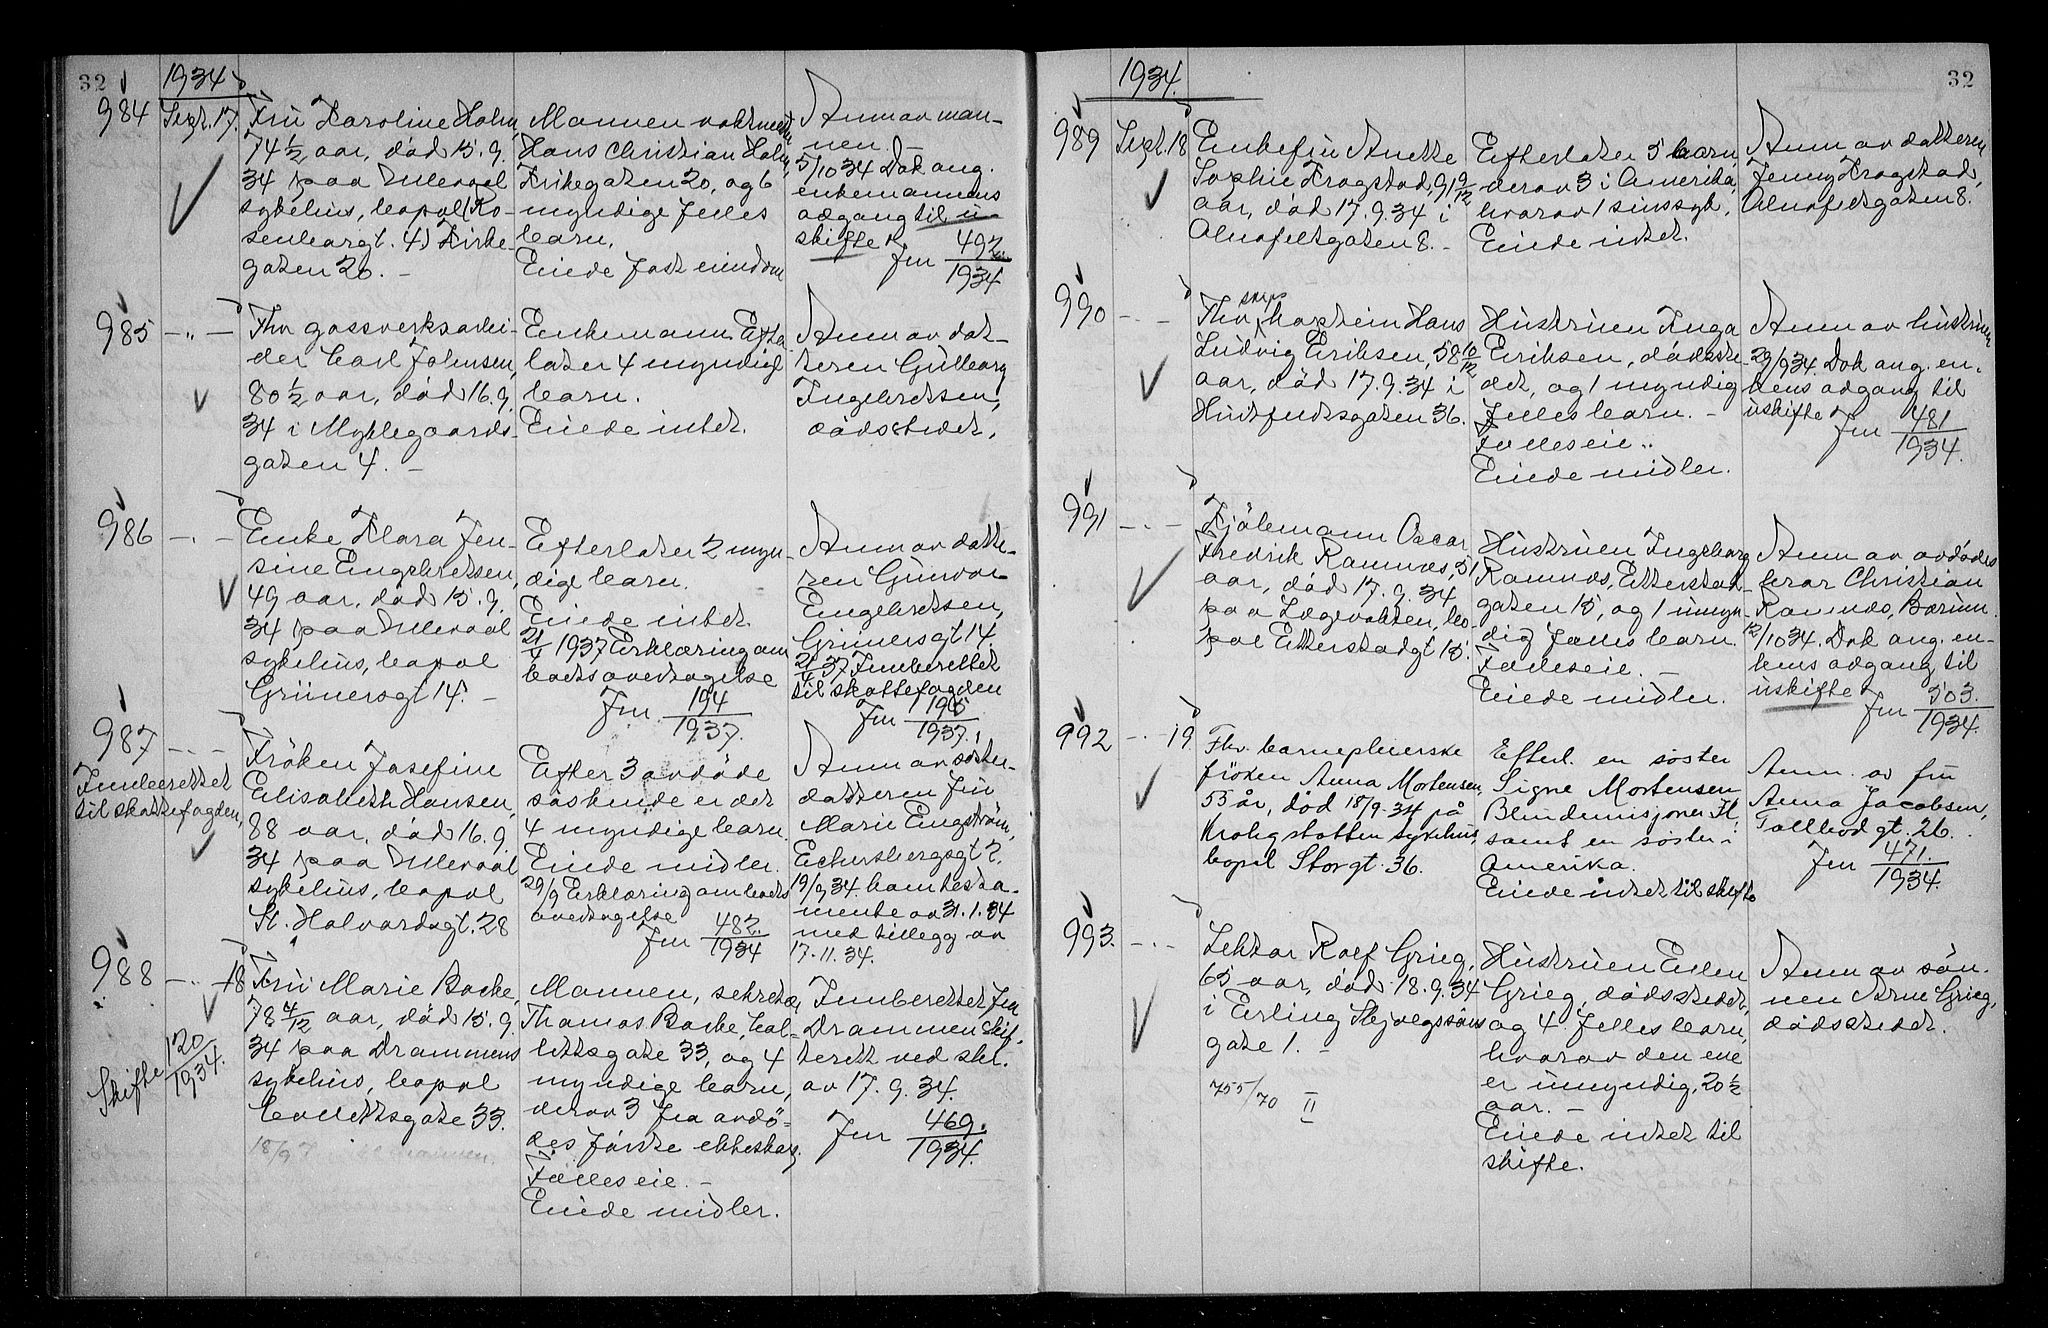 32
1934
984
Sept. 17.
Fru Karoline Holm,
74 1/2 aar, död 15.9.
34 paa Ullevaal
sykehus, bopæl (Ro-
senborggt. 4) Kirke-
gaten 20. -
Mannen vaktmester
Hans Christian Holm,
Kirkegaten 20, og 6
myndige felles
barn.
Eiede fast eiendom
Anm av man-
nen. -
5/10 34 Dok ang.
enkemannens
adgang til u-
skifte
Jnr 492/1934
985
- " -
Fhv gassverksarbei-
der Carl Johnsen,
80 1/2 aar, död 16.9.
34 i Myklegaards-
gaten 4. -
Enkemann. Efter-
later 4 myndige
barn.
Eiede intet.
Anm av dat-
teren Gudborg
Ingebretsen,
dödsstedet.
986
- " -
Enke Klara Jen-
sine Engebretsen,
49 aar, död 15.9.
34 paa Ullevaal
sykehus, bopæl
Grünersgt 14. -
Efterlater 2 myn-
dige barn.
Eiede intet.
1937 Erklæring om
boets overtagelse
Jnr 194/1937.
Anm av datte-
ren Gunvor
Engebretsen,
Grünersgt 14.
37 Innberettet
til skattefogden
Jnr 195/1937.
987
- " -
Innberettet
til skattefogden,
Fröken Josefine
Elisabeth Hansen,
88 aar, död 16.9.
34 paa Ullevaal
sykehus, bopæl
St. Halvardsgt. 28
Efter 3 avdöde
söskende er det
4 myndige barn.
Eiede midler.
29/9 Erklæring om boets
overtagelse
Jnr 482/1934
Anm av söster-
datteren fru
Marie Engström,
Eckersbergsgt 2.
19/9 34 kom testa-
mente av 31.1.34
med tillegg av
17.11.34.
988
- " - 18
Skifte 120/1934.
Fru Marie Backe,
78 4/12 aar, död 15.9.
34 paa Drammens
sykehus, bopæl
Collettsgate 33.
18/9
Mannen, sekretær
Thomas Backe, Col-
lettsgate 33, og 4
myndige barn,
derav 3 fra avdö-
des förste ekteskap.
Fælleseie. -
Eiede midler.
Innberettet fra
Drammen skif-
terett ved skr.
av 17.9.34.
Jnr 469/1934.
32
1934.
989
Sept. 18
Enkefru Anette
Sophie Krogstad, 91 9/12
aar, död 17.9.34 i
Alnafetgaten 8. -
Efterlater 5 barn
derav 3 i Amerika,
hvorav 1 sinssyk.
Eiede intet.
Anm av datteren
Jenny Krogstad,
Alnafetgaten 8.
990
- " -
Fhv skips kaptein Hans
Ludvig Eriksen, 58 10/12
aar, död 17.9.34 i
Huitfeldtsgaten 36.
Hustruen Inga
Eriksen, dödsste-
det, og 1 myndig
felles barn. -
Fælleseie. -
Eiede midler.
Anm av hustruen
29/9 34 Dok ang. en-
kens adgang til
uskifte
Jnr 481/1934.
991
- " -
Kjölemann Oscar
Fredrik Ramnæs, 51
aar, död 17.9.34
paa Lægevakten, bo-
pæl Etterstadgt 15.
Hustruen Ingeborg
Ramnæs, Etterstad-
gaten 15, og 1 umyn-
dig fælles barn.
Fælleseie. -
Eiede midler.
Anm av avdödes
bror Christian
Ramnæs, Bærum.
12/10 34. Dok ang. en-
kens adgang til
uskifte
Jnr 503/1934.
992
- " - 19
Fhv. barnepleierske
fröken Anna Mortensen,
55 år, död 18/9-34 på
Krohgstötten sykehus,
bopæl Storgt. 36.
Efterl. en söster
Signe Mortensen
Blindemisjonen
samt en söster i
Amerika.
Eiede intet til skifte
Anm. av fru
Anna Jacobsen,
Tollbodgt. 26.
Jnr 471/1934.
993.
- " -
Lektor Rolf Grieg,
65 aar, död 18.9.34
i Erling Skjalgssöns
gate 1. -
755/70 II
Hustruen Ellen
Grieg, dödsstedet,
og 4 felles barn,
hvorav den ene
er umyndig, 20 1/2
aar. -
Eiede intet til
skifte.
Anm av sön-
nen Arne Grieg,
dödsstedet.